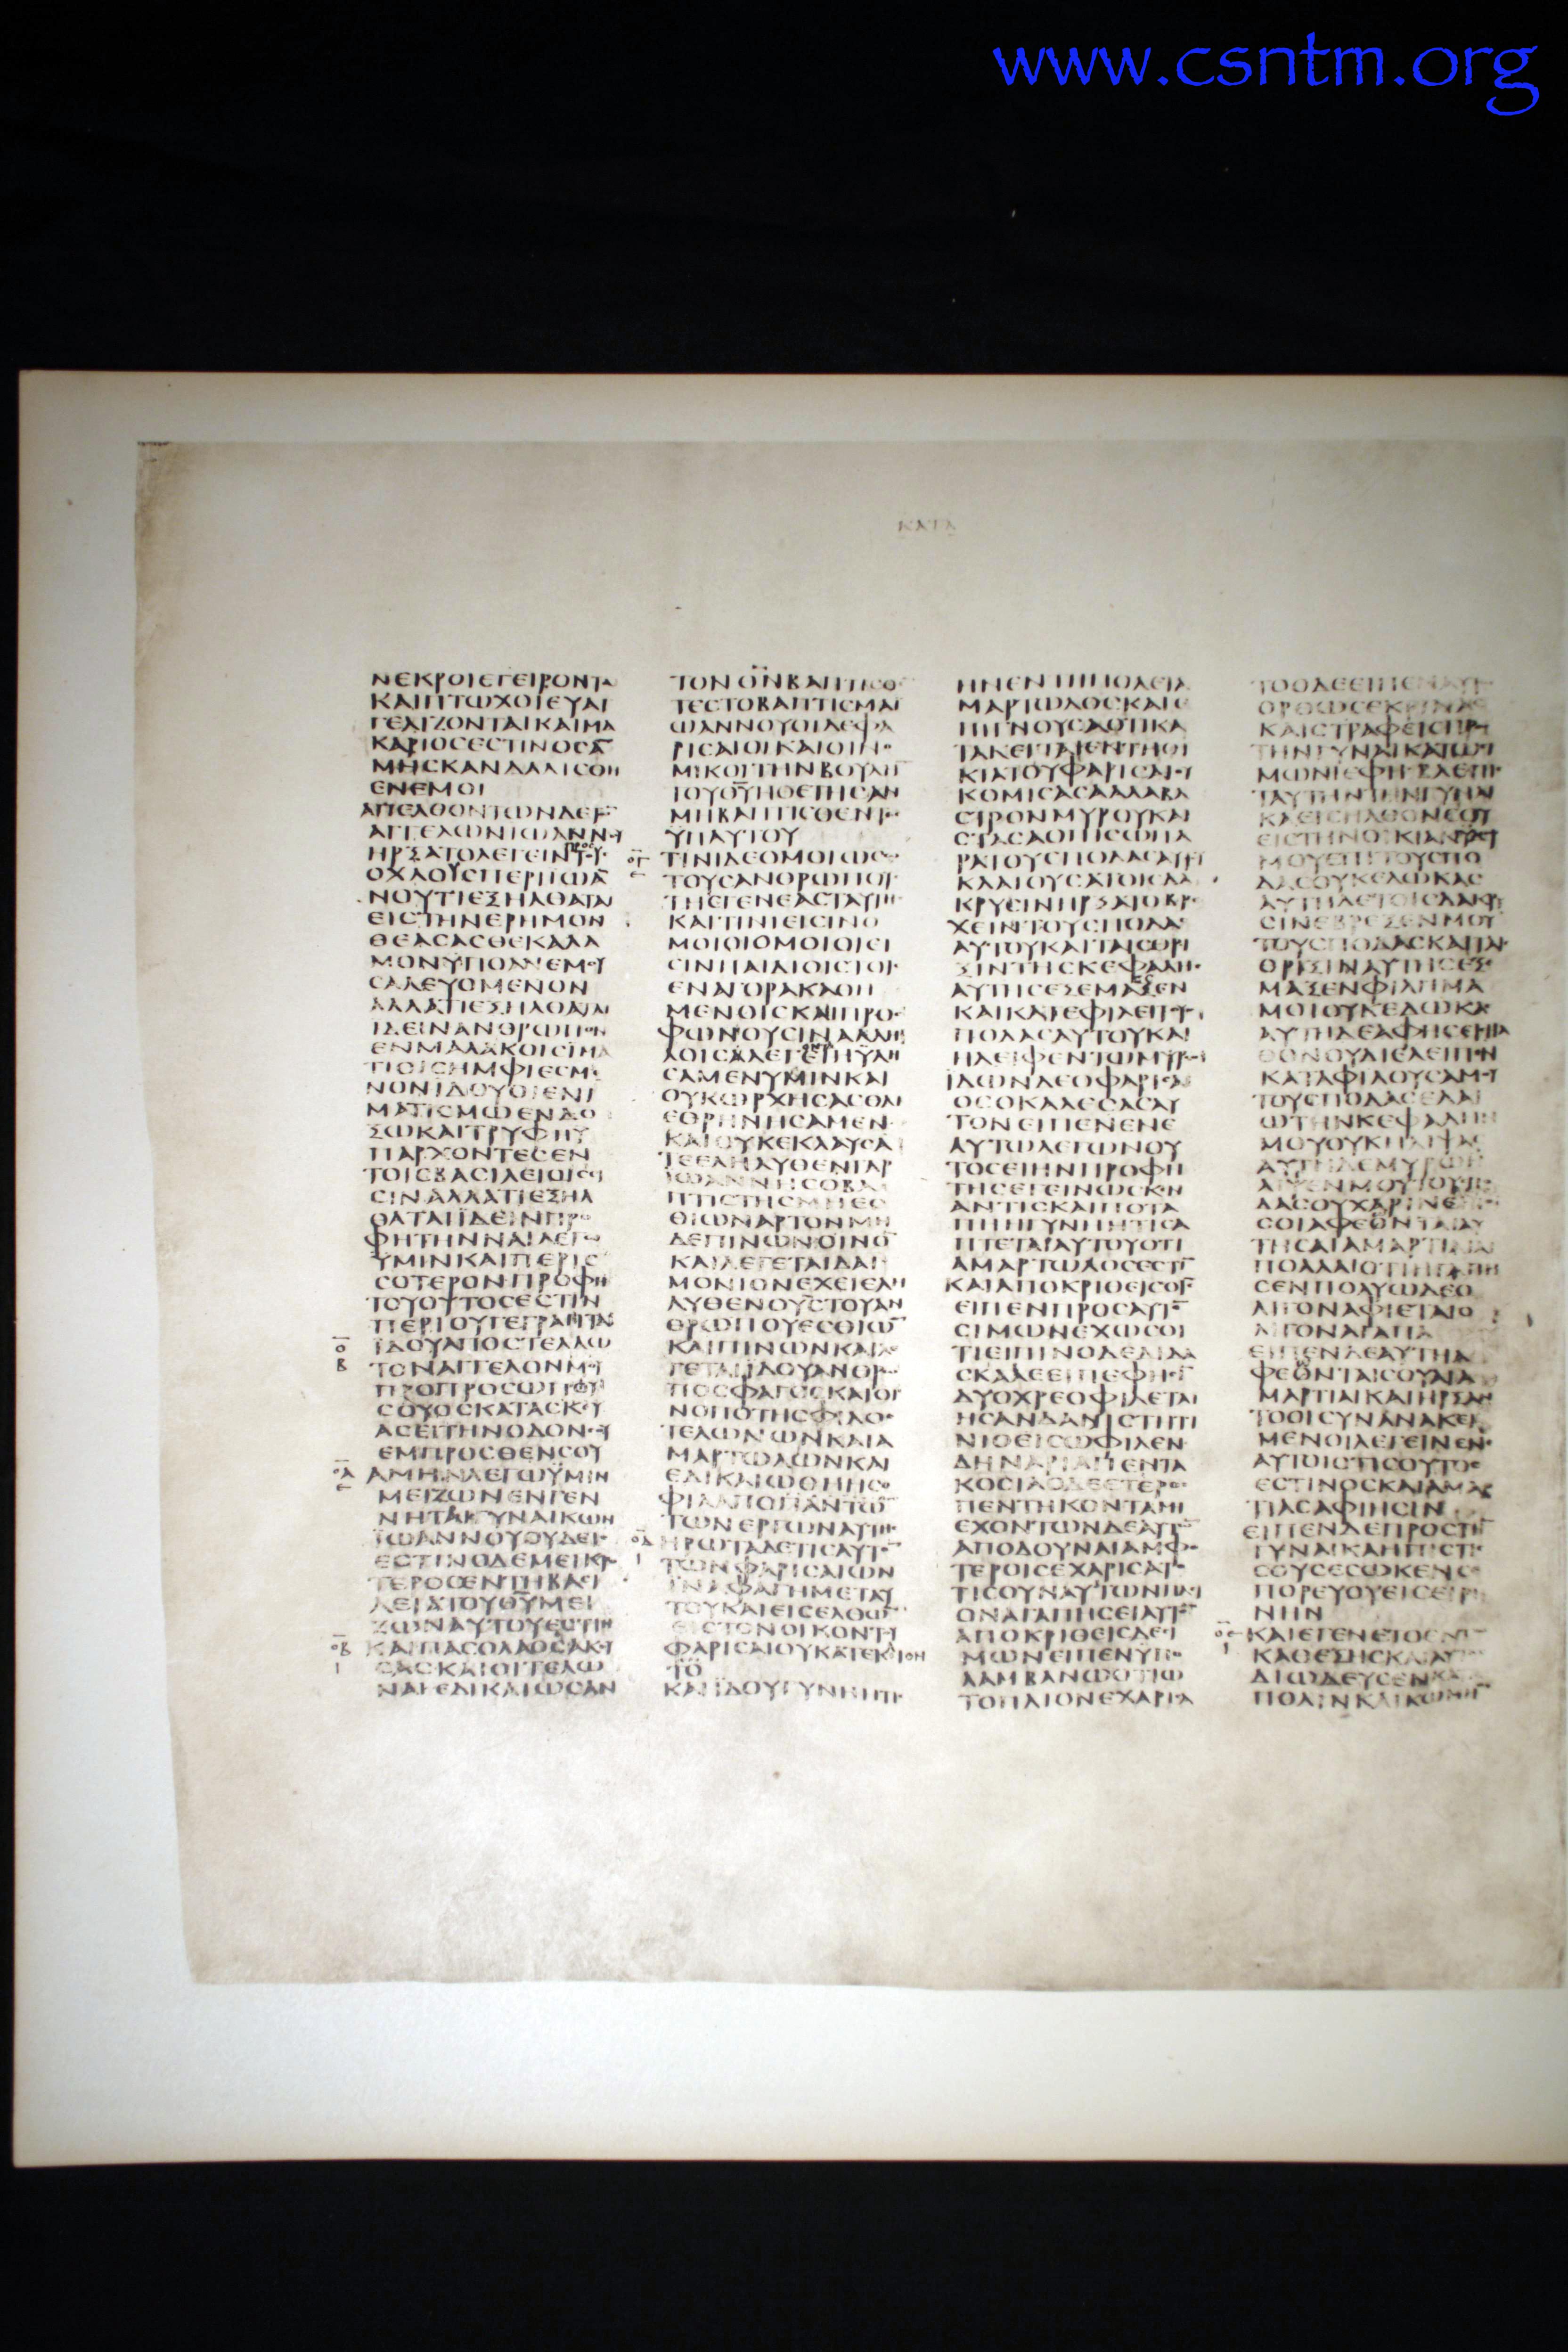 www.csntm.org
ΚΑΤΑ
ΝΕΚΡΟΙΕΓΕΙΡΟΝΤΑΙ
ΚΑΙΠΤΩΧΟΙΕΥΑΓ
ΓΕΛΙΖΟΝΤΑΙΚΑΙΜΑ
ΚΑΡΙΟСΕСΤΙΝΟСΑ̅
ΜΗСΚΑΝΔΑΛΙСΘΗ
ΕΝΕΜΟΙ
ΑΠΕΛΘΟΝΤΩΝΔΕΤ
ΑΓΓΕΛΩΝΙΩΑΝΝΟΥ
ΟΧΛΟΥСΠΕΡΙΙΩΑ̅
ΝΟΥΤΙΕΞΗΛΘΑΤΑΙ
ΕΙСΤΗΝΕΡΗΜΟΝ
ΘΕΑСΑСΘΕΚΑΛΑ
ΜΟΝΥΠΟΑΝΕΜΟΥ
СΑΛΕΥΟΜΕΝΟΝ
ΑΛΛΑΤΙΕΞΗΛΘΑΤΑΙ
ΙΔΕΙΝΑΝΘΡΩΠΟΝ
ΕΝΜΑΛΑΚΟΙСΙΜΑ
ΤΙΟΙСΗΜΦΙΕСΜΕ
ΝΟΝΙΔΟΥΟΙΕΝΙ
ΜΑΤΙСΜΩΕΝΔΟ
ΞΩΚΑΙΤΡΥΦΗΥ
ΠΑΡΧΟΝΤΕСΕΝ
ΤΟΙСΒΑСΙΛΕΙΟΙСΕΙ
СΙΝΑΛΛΑΤΙΕΞΗΛ
ΘΑΤΑΙΪΔΕΙΝΠΡΟ
ΦΗΤΗΝΝΑΙΛΕΓΩ
ΥΜΙΝΚΑΙΠΕΡΙС
СΟΤΕΡΟΝΠΡΟΦΗ
ΤΟΥΟΥΤΟСΕСΤΙΝ
ΠΕΡΙΟΥΓΕΓΡΑΠΤΑΙ
Ο̅Β
ΪΔΟΥΑΠΟСΤΕΛΛΩ
ΤΟΝΑΓΓΕΛΟΝΜΟΥ
ΠΡΟΠΡΟСΩΠΟΥ
СΟΥΟСΚΑΤΑСΚΕΥ
ΑСΕΙΤΗΝΟΔΟΝСΟΥ
ΕΜΠΡΟСΘΕΝСΟΥ
ΑΜΗΝΛΕΓΩΫΜΙΝ
ΜΕΙΖΩΝΕΝΓΕΝ
ΝΗΤΟΙСΓΥΝΑΙΚΩΝ
ΙΩΑΝΝΟΥΟΥΔΕΙС
ΕСΤΙΝΟΔΕΜΕΙΚΡΟ
ΤΕΡΟСΕΝΤΗΒΑСΙ
ΛΕΙΑΤΟΥΘ̅Υ̅ΜΕΙ
ΖΩΝΑΥΤΟΥΕСΤΙΝ
ΚΑΙΠΑСΟΛΑΟСΑΚΟΥ
СΑСΚΑΙΟΙΤΕΛΩ
ΝΑΙΕΔΙΚΑΙΩСΑΝ
ΤΟΝΘ̅Ν̅ΒΑΠΤΙСΘΕ
ΤΕСΤΟΒΑΠΤΙСΜΑΙ
ΩΑΝΝΟΥΟΙΔΕΦΑ
ΡΙСΑΙΟΙΚΑΙΟΙΝΟ
ΜΙΚΟΙΤΗΝΒΟΥΛΗ̅
ΤΟΥΘ̅Υ̅ΗΘΕΤΗСΑΝ
ΜΗΒΑΠΤΙСΘΕΝΤΕС
ΥΠΑΥΤΟΥ
ΤΙΝΙΔΕΟΜΟΙΩСΩ
ΤΟΥСΑΝΘΡΩΠΟΥС
ΤΗСΓΕΝΕΑСΤΑΥΤΗС
ΚΑΙΤΙΝΙΕΙСΙΝΟ
ΜΟΙΟΙΟΜΟΙΟΙΕΙ
СΙΝΠΑΙΔΙΟΙСΤΟΙС
ΕΝΑΓΟΡΑΚΑΘΗ
ΜΕΝΟΙСΚΑΙΠΡΟС
ΦΩΝΟΥСΙΝΑΛΛΗ
СΑΜΕΝΥΜΙΝΚΑΙ
ΟΥΚΩΡΧΗСΑСΘΑΙ
ΕΘΡΗΝΗСΑΜΕΝ
ΚΑΙΟΥΚΕΚΛΑΥСΑ
ΤΕΕΛΗΛΥΘΕΝΓΑΡ
ΙΩΑΝΝΗСΟΒΑ
ΠΤΙСΤΗСΜΗΕС
ΘΙΩΝΑΡΤΟΝΜΗ
ΔΕΠΙΝΩΝΟΙΝΟ̅
ΚΑΙΛΕΓΕΤΑΙΔΑΙ
ΜΟΝΙΟΝΕΧΕΙΕΛΗ
ΛΥΘΕΝΟΥ̅СΤΟΥΑΝ
ΘΡΩΠΟΥΕСΘΙΩ̅
ΚΑΙΠΙΝΩΝΚΑΙΛΕ
ΓΕΤΑΙΪΔΟΥΑΝΘΡΩ
ΠΟСΦΑΓΟСΚΑΙΟΙ
ΝΟΠΟΤΗСΦΙΛΟС
ΤΕΛΩΝΩΝΚΑΙΑ
ΜΑΡΤΩΛΩΝΚΑΙ
ΕΔΙΚΑΙΩΘΗΗСΟ
ΦΙΑΑΠΟΠΑΝΤΩ̅
ΤΩΝΕΡΓΩΝΑΥΤΗС
ΗΡΩΤΑΔΕΤΙСΑΥΤΟ̅
ΤΩΝΦΑΡΙСΑΙΩΝ
ΪΝΑΦΑΓΗΜΕΤΑΥ
ΤΟΥΚΑΙΕΙСΕΛΘΩ̅
ΕΙСΤΟΝΟΙΚΟΝΤΟΥ
ΦΑΡΙСΑΙΟΥΚΑΤΕΚΛΙΘΗ
ΚΑΙΪΔΟΥΓΥΝΗΗΤΙС
ΗΝΕΝΤΗΠΟΛΕΙΑ
ΜΑΡΤΩΛΟСΚΑΙΕ
ΠΙΓΝΟΥСΑΟΤΙΚΑ
ΤΑΚΕΙΤΑΙΕΝΤΗΟΙ
ΚΙΑΤΟΥΦΑΡΙСΑΙΟΥ
ΚΟΜΙСΑСΑΑΛΑΒΑ
СΤΡΟΝΜΥΡΟΥΚΑΙ
СΤΑСΑΟΠΙСΩΠΑ
ΡΑΤΟΥСΠΟΔΑСΑΥΤΟΥ
ΚΛΑΙΟΥСΑΤΟΙСΔΑ
ΚΡΥСΙΝΗΡΞΑΤΟΒΡΕ
ΧΕΙΝΤΟΥСΠΟΔΑС
ΑΥΤΟΥΚΑΙΤΑΙСΘΡΙ
ΞΙΝΤΗСΚΕΦΑΛΗС
ΑΥΤΗСΕΞΕΜΑΞΕΝ
ΚΑΙΚΑΤΕΦΙΛΕΙΤΟΥС
ΠΟΔΑСΑΥΤΟΥΚΑΙ
ΗΛΕΙΦΕΝΤΩΜΥΡΩ
ΪΔΩΝΔΕΟΦΑΡΙСΑΙ
ΟСΟΚΑΛΕСΑСΑΥ
ΤΟΝΕΙΠΕΝΕΝΕ
ΑΥΤΩΛΕΓΩΝΟΥ
ΤΟСΕΙΗΝΠΡΟΦΗ
ΤΗСΕΓΕΙΝΩСΚΕΝ
ΑΝΤΙСΚΑΙΠΟΤΑ
ΠΗΗΓΥΝΗΗΤΙСΑ
ΠΤΕΤΑΙΑΥΤΟΥΟΤΙ
ΑΜΑΡΤΩΛΟСΕСΤΙ̅
ΚΑΙΑΠΟΚΡΙΘΕΙСΟΙ̅С̅
ΕΙΠΕΝΠΡΟСΑΥΤΟ̅
СΙΜΩΝΕΧΩСΟΙ
ΤΙΕΙΠΙΝΟΔΕΔΙΔΑ
СΚΑΛΕΕΙΠΕΦΗСΙ̅
ΔΥΟΧΡΕΟΦΙΛΕΤΑΙ
ΗСΑΝΔΑΝΙСΤΗΤΙ
ΝΙΟΕΙСΩΦΙΛΕΝ
ΔΗΝΑΡΙΑΠΕΝΤΑ
ΚΟСΙΑΟΔΕΕΤΕΡΟС
ΠΕΝΤΗΚΟΝΤΑΜΗ
ΕΧΟΝΤΩΝΔΕΑΥΤΩ̅
ΑΠΟΔΟΥΝΑΙΑΜΦΟ
ΤΕΡΟΙСΕΧΑΡΙСΑΤΟ
ΤΙСΟΥΝΑΥΤΩΝΠΛΙ
ΟΝΑΓΑΠΗСΕΙΑΥΤΟ̅
ΑΠΟΚΡΙΘΕΙСΔΕСΙ
ΜΩΝΕΙΠΕΝΫΠΟ
ΛΑΜΒΑΝΩΟΤΙΩ
ΤΟΠΛΙΟΝΕΧΑΡΙСΑ
ΤΟΟΔΕΕΙΠΕΝΑΥΤΩ
ΟΡΘΩСΕΚΡΙΝΑС
ΚΑΙСΤΡΑΦΕΙСΠΡΟС
ΤΗΝΓΥΝΑΙΚΑΤΩСΙ
ΜΩΝΙΕΦΗΒΛΕΠΙС
ΤΑΥΤΗΝΤΗΝΓΥΝΑΙ
ΚΑΕΙСΗΛΘΟΝСΟΥ
ΕΙСΤΗΝΟΙΚΙΑΝ
ΜΟΥΕΠΙΤΟΥСΠΟ
ΔΑСΟΥΚΕΔΩΚΑС
ΑΥΤΗΔΕΤΟΙСΔΑΚΡΥ
СΙΝΕΒΡΕΞΕΝΜΟΥ
ΤΟΥСΠΟΔΑСΚΑΙΤΑΙС
ΘΡΙΞΙΝΑΥΤΗСΕΞΕ
ΜΑΞΕΝΦΙΛΗΜΑ
ΜΟΙΟΥΚΕΔΩΚΑС
ΑΥΤΗΔΕΑΦΗСΕΙСΗΛ
ΘΟΝΟΥΔΙΕΛΕΙΠΕΝ
ΚΑΤΑΦΙΛΟΥСΑΜΟΥ
ΤΟΥСΠΟΔΑСΕΛΑΙ
ΩΤΗΝΚΕΦΑΛΗΝ
ΜΟΥΟΥΚΗΛΙΨΑС
ΑΥΤΗΔΕΜΥΡΩ
ΔΑСΟΥΧΑΡΙΝΛΕΓΩ
СΟΙΑΦΕΩΝΤΑΙΑΥ
ΤΗСΑΙΑΜΑΡΤΙΑΙΑΙ
ΠΟΛΛΑΙΟΤΙΗΓΑΠΗ
СΕΝΠΟΛΥΩΔΕΟ
ΛΙΓΟΝΑΦΙΕΤΑΙΟ
ΛΙΓΟΝΑΓΑΠΑ
ΕΙΠΕΝΔΕΑΥΤΗΑ
ΦΕΩΝΤΑΙСΟΥΑΙΑ
ΜΑΡΤΙΑΙΚΑΙΗΡΞΑΝ
ΤΟΟΙСΥΝΑΝΑΚΕΙ
ΜΕΝΟΙΛΕΓΕΙΝΕΝΕ
ΑΥΤΟΙСΤΙСΟΥΤΟС
ΕСΤΙΝΟСΚΑΙΑΜΑΡ
ΤΙΑСΑΦΙΗСΙΝ
ΕΙΠΕΝΔΕΠΡΟСΤΗ̅
ΓΥΝΑΙΚΑΗΠΙСΤΙС
СΟΥСΕСΩΚΕΝСΕ
ΠΟΡΕΥΟΥΕΙСΕΙΡΗ
ΝΗΝ
ΚΑΙΕΓΕΝΕΤΟΕΝΤΩ
ΚΑΘΕΞΗСΚΑΙΑΥΤΟС
ΔΙΩΔΕΥСΕΝΚΑΤΑ
ΠΟΛΙΝΚΑΙΚΩΜΗ̅